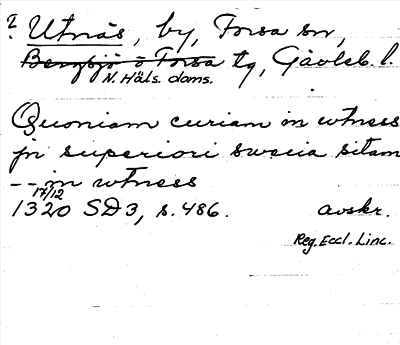 ? Utnäs, by, Forsa sn,
Bergsjö o Forsa tg, Gävleb. l.
N. Häls. doms.
Quoniam curiam in wtness
jn superiori swecia sitam
-- in wtness
17/12
1320 SD3, s. 486. avskr.
Reg. Eccl. Linc.